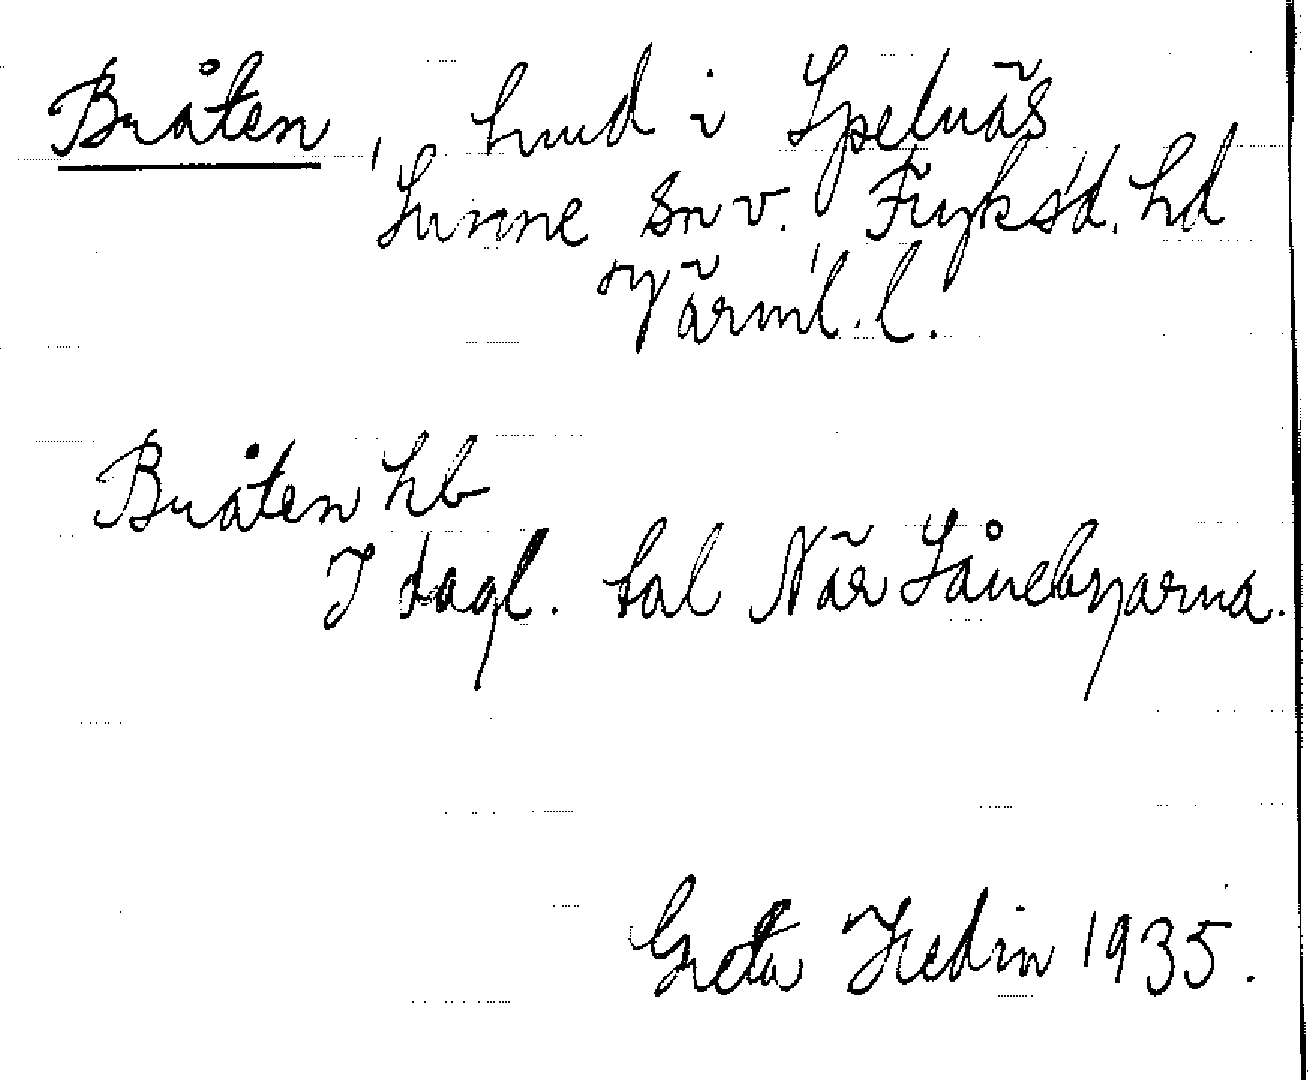 Bråten, hmd i Spelnäs
Sunne sn v. Fryksd. hd
Värml. l.
Bråten hb
I dagl. tal När Lånebyarna.
Greta Hedin 1935.